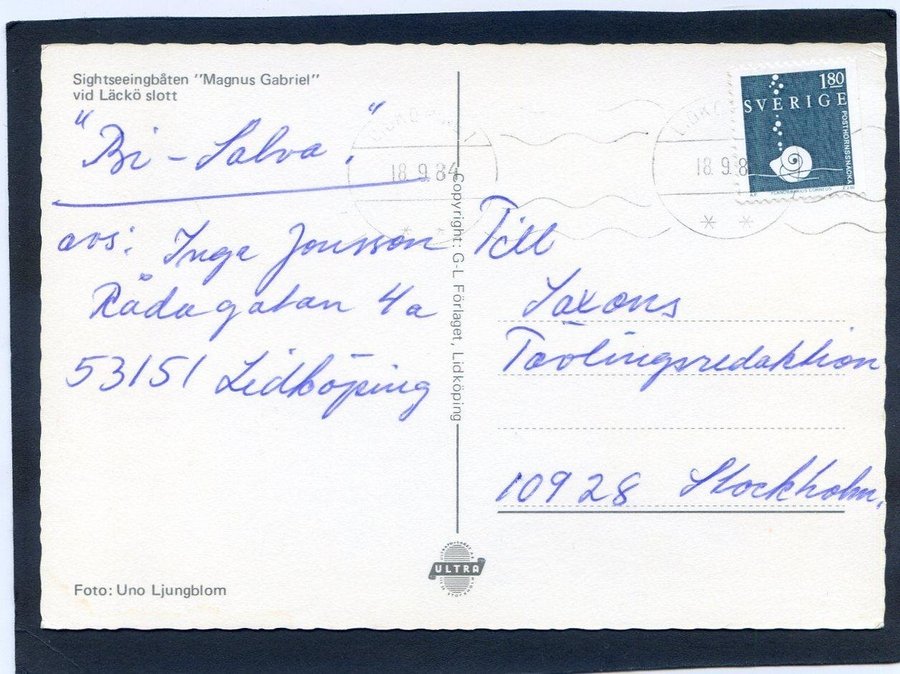 Sightseeingbåten "Magnus Gabriel"
vid Läckö slott
"Bi - Salva."
avs: Inga Jonsson
Rådagatan 4a
53151 Lidköping
Copyright: G-L Förlaget, Lidköping
Till
Saxons
Tävlingsredaktion
10928 Stockholm.
18.9.84
18.9.8
1.80
SVERIGE
POSTHORNSSNÄCKA
ULTRA
Foto: Uno Ljungblom